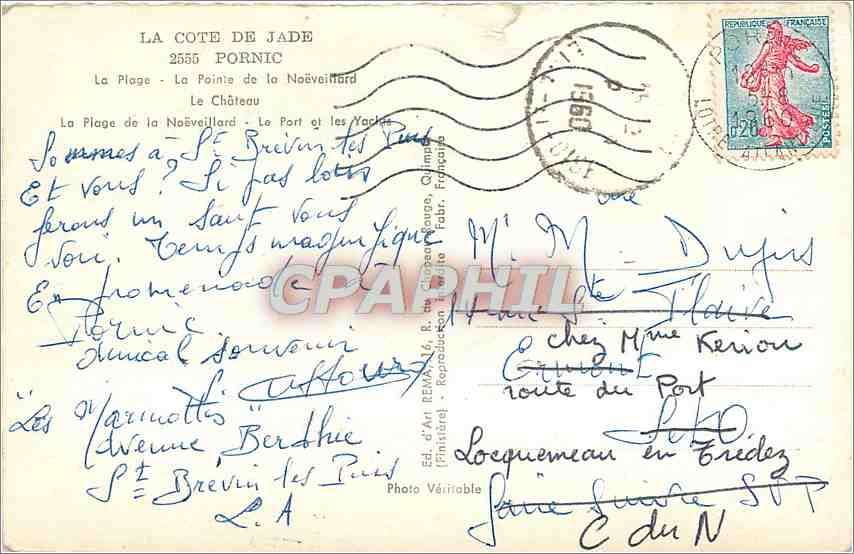 LA COTE DE JADE
2555 PORNIC
La Plage - La Pointe de la Noëveillard
Le Château
La Plage de la Noëveillard - Le Port et les Yachts
Sommes à St Brévin les Pins
Et vous? Si pas loin
ferons un saut vous
voir. Temps magnifique
En promenade à
Pornic.
Amical souvenir
"Les Marmottes"
Avenue Berthie
St Brévin les Pins
L.A
Ed. d'Art REMA, 16, R. du Chapeau-Rouge, Quimper
(Finistère) - Reproduction interdite Fabr. Française
Photo Véritable
CPAPHIL
REPUBLIQUE FRANÇAISE
0,20
POSTES
1960
LOIRE
Mr M
14 rue Ste Flaive
chez Mme Kerion
Ermont
route du Port
S et O
Locquemeau en Trédez
Faire Suivre SVP
C du N